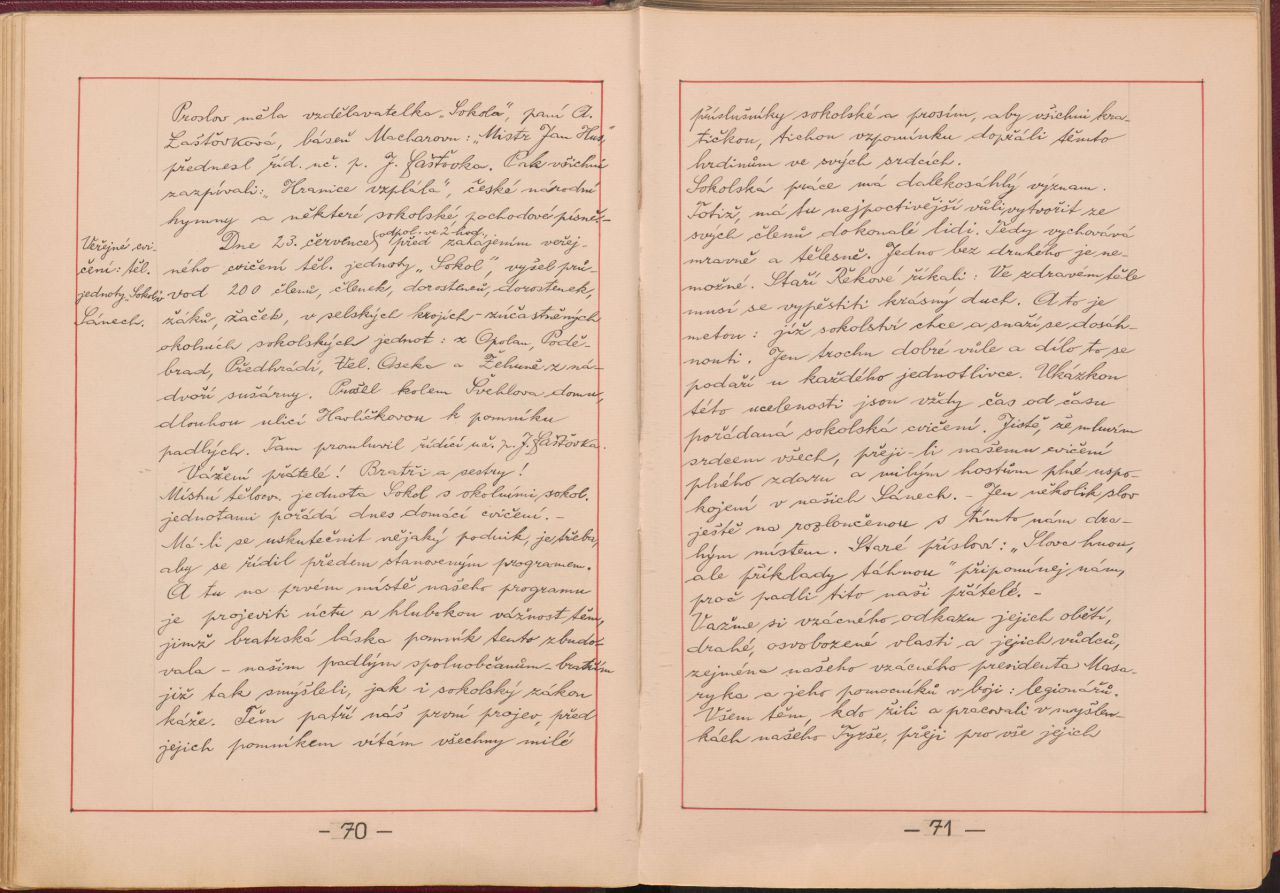 Proslov měla vzdělavatelka „Sokola", paní A.
Laštovková, báseň Macharovu: „Mistr Jan Hus",
přednesl říd. uč. p. J. Laštovka. Pak všichni
zazpívali: „Hranice vzplála", české národní
hymny a některé sokolské pochodové písně.
odpol. ve 2 hod.
Dne 23. července před zahájením veřej-
ného cvičení těl. jednoty „Sokol", vyšel prů-
vod 200 členů, členek, dorostenců, dorostenek,
žáků, žaček, v selských krojích - zúčastněných
okolních sokolských jednot: z Opolan, Podě-
brad, Předhrádí, Vel. Oseka a Žehuně z ná-
dvoří sušárny. Prošel kolem Švehlova domu,
dlouhou ulicí Havlíčkovou k pomníku
padlých. Tam promluvil řídící uč. p. J. Laštovka.
Vážení přátelé! Bratři a sestry!
Místní tělocv. jednota Sokol s okolními sokol.
jednotami pořádá dnes domácí cvičení. -
Má-li se uskutečnit nějaký podnik, je třeba,
aby se řídil předem stanoveným programem.
A tu na prvém místě našeho programu
je projeviti úctu a hlubokou vážnost těm,
jimž bratrská láska pomník tento zbudo-
vala - našim padlým spoluobčanům - bratřím
již tak smýšleli, jak i sokolský zákon
káže. Těm patří náš první projev, před
jejich pomníkem vítám všechny milé
Veřejné cvi-
čení: těl.
jednoty „Sokol" v
Sánech.
- 70 -
příslušníky sokolské a prosím, aby všichni kra-
tičkou, tichou vzpomínku dopřáli těmto
hrdinům ve svých srdcích.
Sokolská práce má dalekosáhlý význam.
Totiž, má tu nejpoctivější vůli, vytvořit ze
svých členů dokonalé lidi. Tedy vychovává
mravně a tělesně. Jedno bez druhého je ne-
možné. Staří Řekové říkali: Ve zdravém těle
musí se vypěstiti krásný duch. A to je
metou: již sokolství chce a snaží se dosáh-
nouti. Jen trochu dobré vůle a dílo to se
podaří u každého jednotlivce. Ukázkou
této ucelenosti jsou vždy čas od času
pořádaná sokolská cvičení. Jistě, že mluvím
srdcem všech, přeji-li našemu cvičení
plného zdaru a milým hostům plné uspo-
kojení v našich Sánech. - Jen několik slov
ještě na rozloučenou s tímto nám dra-
hým místem. Staré přísloví: „Slova hnou,
ale příklady táhnou" připomínej nám,
proč padli tito naši přátelé. -
Važme si vzácného odkazu jejich obětí,
drahé, osvobozené vlasti a jejich vůdců,
zejména našeho vzácného presidenta Masa-
ryka a jeho pomocníků v boji: legionářů.
Všem těm, kdo žili a pracovali v myšlen-
kách našeho Tyrše, přeji pro vše jejich
- 71 -